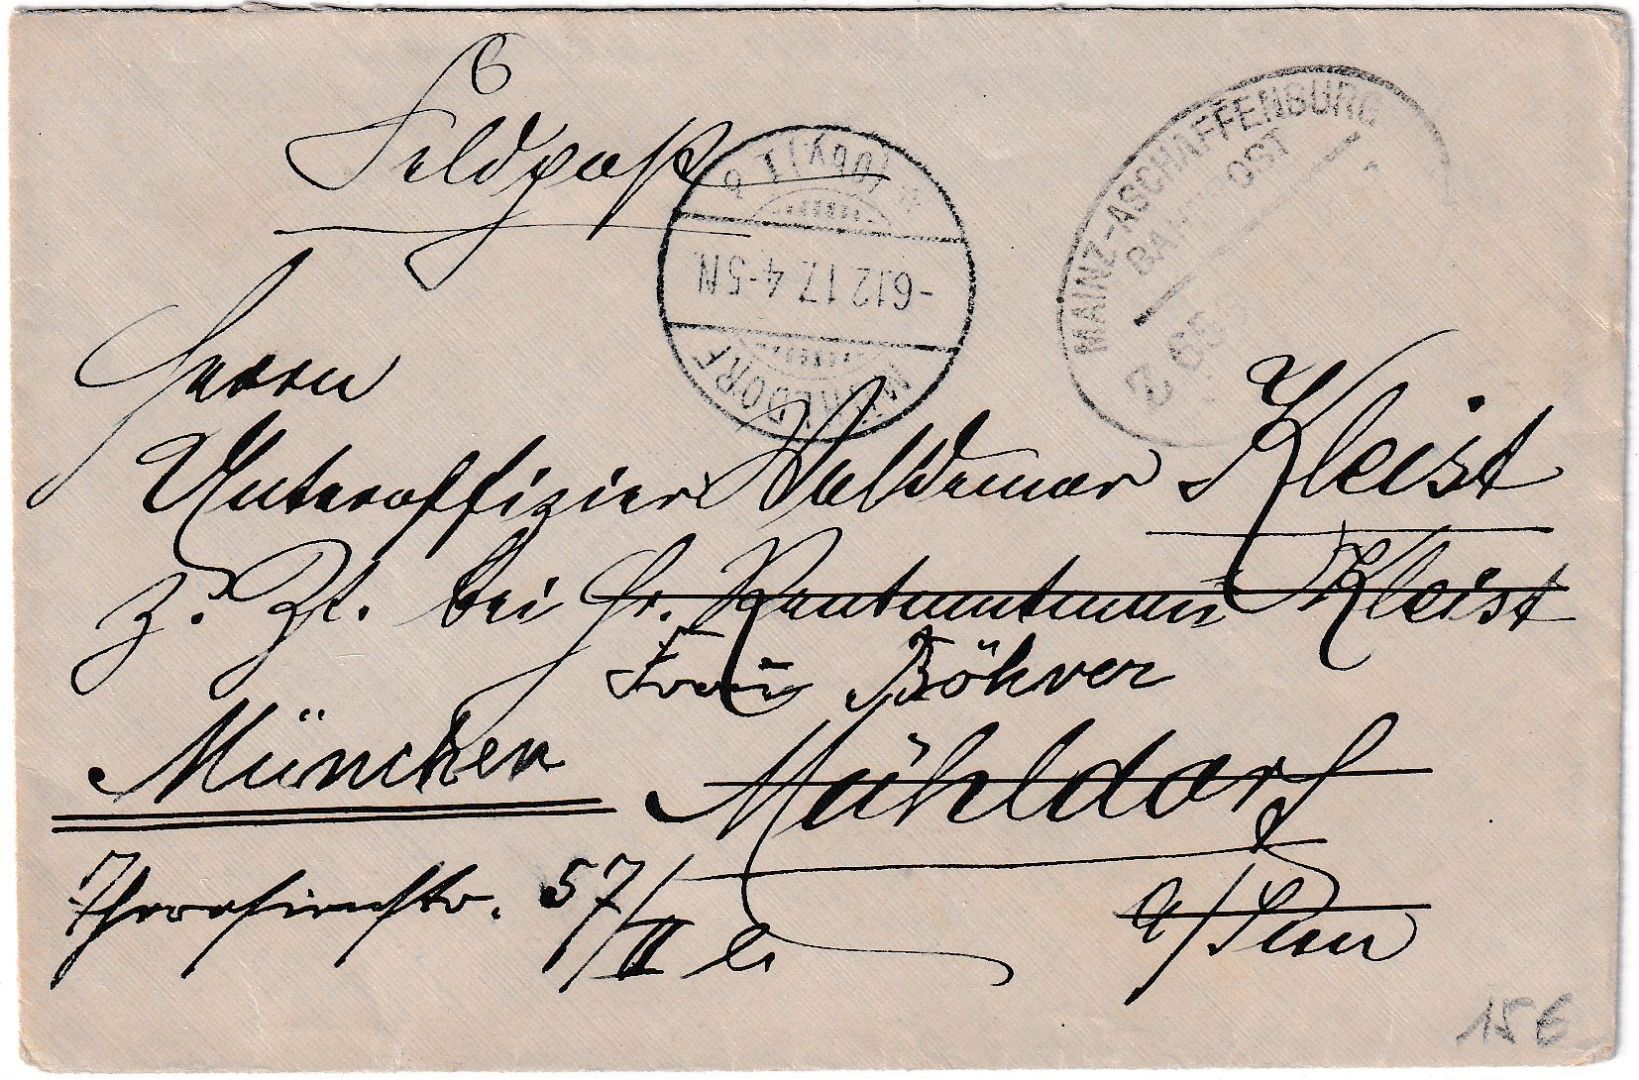 Feldpost
MÜHLDORF
* (OBY.) I 6
-6.12.17. 4-5 N.
MAINZ-ASCHAFFENBURG
BAHNPOST
Z. 65
Herrn
Unteroffizier Waldemar Kleist
z. Zt. bei Hr. Rentamtmann Kleist
Frau Böhrer
München
Mühldorf
Theresienstr. 57/II l.
a/Inn
15€